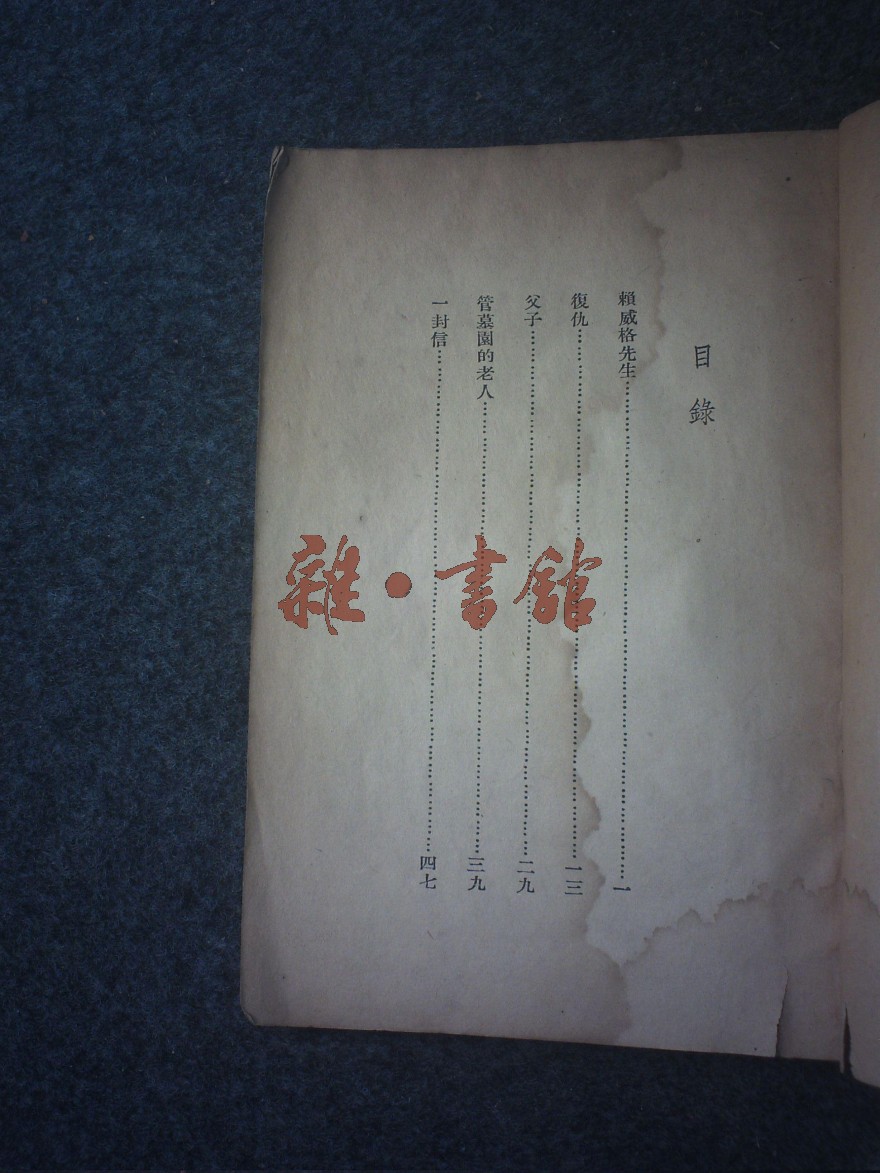 目錄
賴威格先生……一
復仇……一三
父子……二九
管墓園的老人……三九
一封信……四七
雜·書館